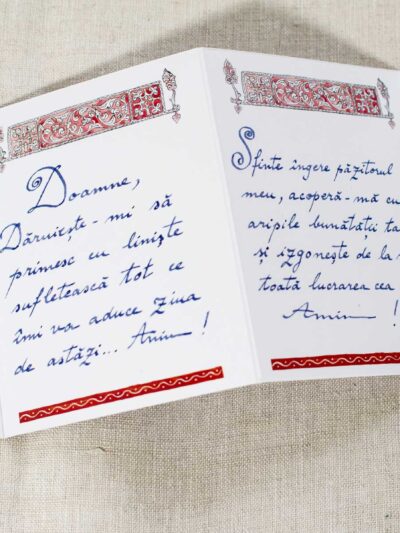 Doamne,
Dăruiește-mi să
primesc cu liniște
sufletească tot ce
îmi va aduce ziua
de astăzi... Amin!
Sfinte îngere păzitorul
meu, acoperă-mă cu
aripile bunătății
și izgonește de la
toată lucrarea cea
Amin!